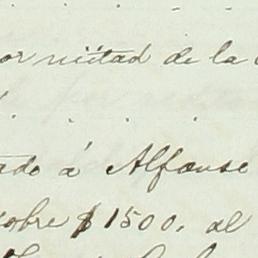 or mitad de la
ado á Alfonse
sobre $1500. al